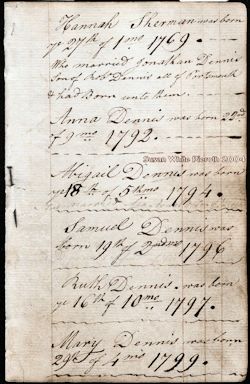 Hannah Sherman was born
ye 27th of 1mo 1769.
Who married Jonathan Dennis
Son of Robt Dennis all of Portsmouth
& had Born unto them.
Anna Dennis was born 22nd
of 9mo 1792.
Susan White Pieroth 2004
Abigail Dennis was born
ye 18th of 5thmo 1794.
Samuel Dennis was
born 19th of 2ndmo 1796
Ruth Dennis was born
ye 16th of 10mo 1797.
Mary Dennis was born
29th of 4mo 1799.